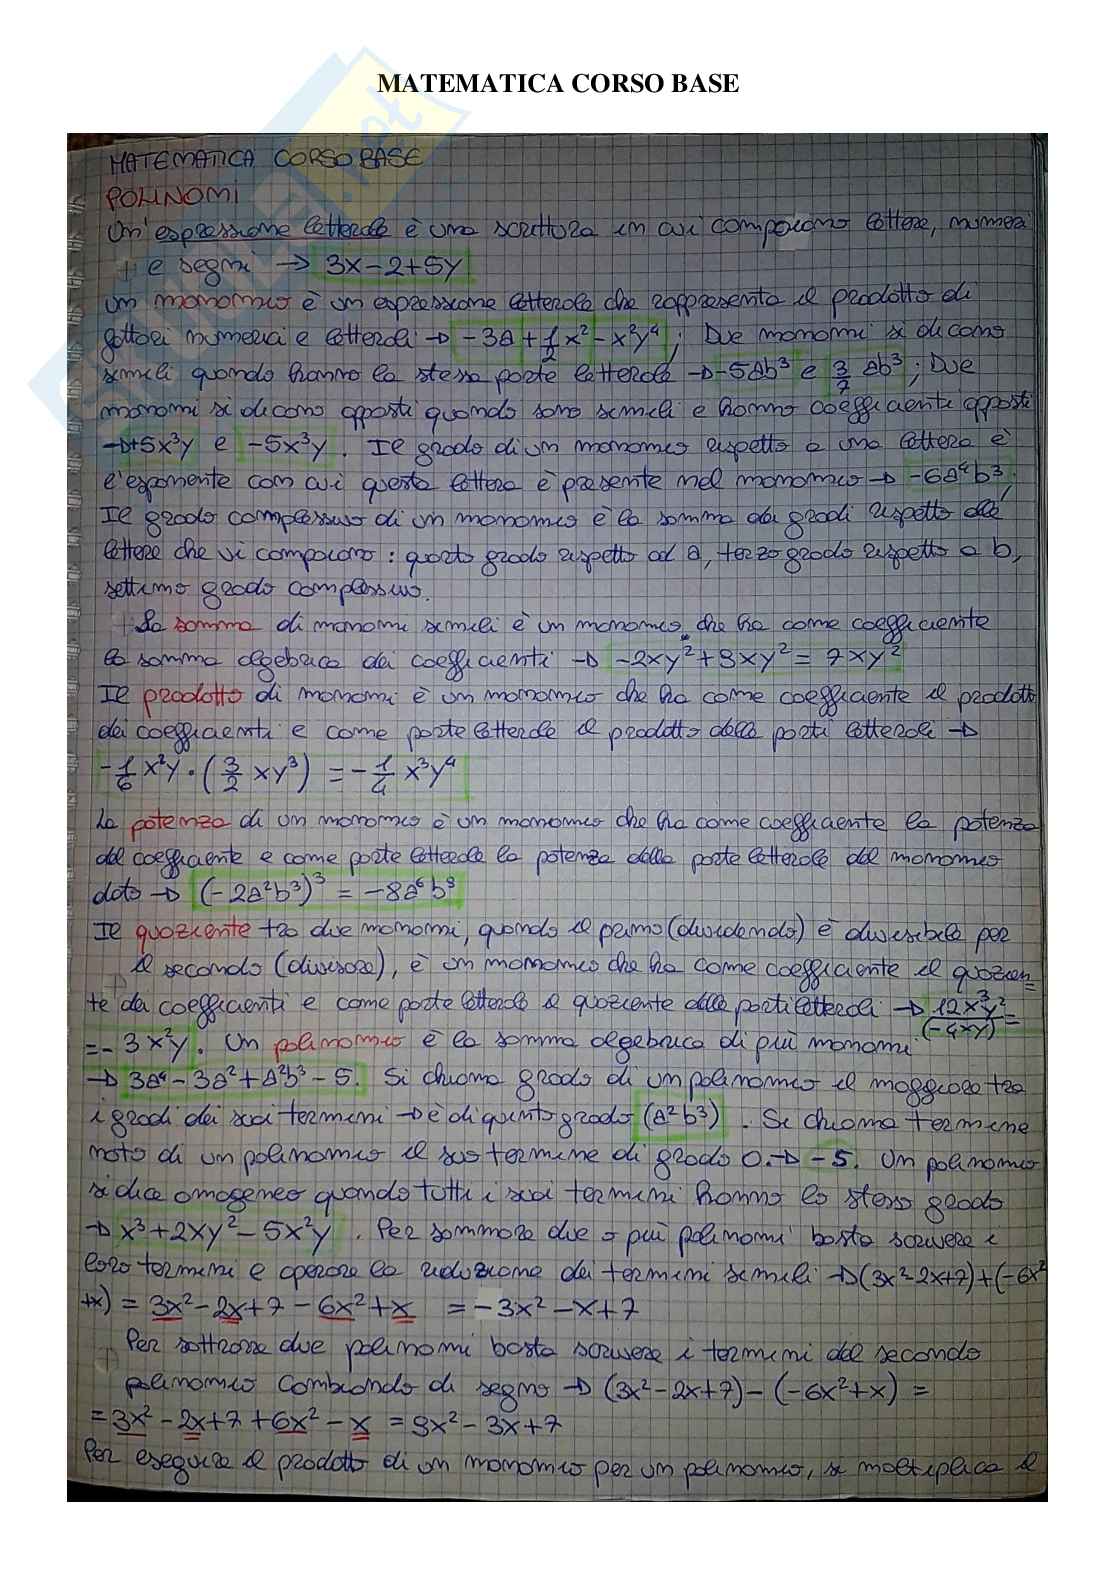 MATEMATICA CORSO BASE
MATEMATICA CORSO BASE
POLINOMI
Un'espressione letterale è una scrittura in cui compaiono lettere, numeri
e segni → 3x-2+5y
un monomio è un espressione letterale che rappresenta il prodotto di
fattori numerici e letterali → -3a+1/2x²-x²y⁴; Due monomi si dicono
simili quando hanno la stessa parte letterale → -5ab³ e 3/7 ab³; Due
monomi si dicono opposti quando sono simili e hanno coefficienti opposti
→+5x³y e -5x³y. Il grado di un monomio rispetto a una lettera è
l'esponente con cui questa lettera è presente nel monomio → -6a⁴b³;
Il grado complessivo di un monomio è la somma dei gradi rispetto alle
lettere che vi compaiono: quarto grado rispetto ad a, terzo grado rispetto a b,
settimo grado complessivo.
La somma di monomi simili è un monomio che ha come coefficiente
la somma algebrica dei coefficienti → -2xy²+9xy²=7xy²
Il prodotto di monomi è un monomio che ha come coefficiente il prodotto
dei coefficienti e come parte letterale il prodotto delle parti letterali →
-1/6 x²y · (3/2 xy³) = -1/4 x³y⁴
La potenza di un monomio è un monomio che ha come coefficiente la potenza
del coefficiente e come parte letterale la potenza della parte letterale del monomio
dato → (-2a²b³)³ = -8a⁶b⁹
Il quoziente tra due monomi, quando il primo (dividendo) è divisibile per
il secondo (divisore), è un monomio che ha come coefficiente il quozien=
te dei coefficienti e come parte letterale il quoziente delle parti letterali → 12x³y²/(-4xy) =
=-3x²y. Un polinomio è la somma algebrica di più monomi
→ 3a⁴-3a²+a²b³-5. Si chiama grado di un polinomio il maggiore tra
i gradi dei suoi termini → è di quinto grado (a²b³). Si chiama termine
noto di un polinomio il suo termine di grado 0. → -5. Un polinomio
si dice omogeneo quando tutti i suoi termini hanno lo stesso grado
→ x³+2xy²-5x²y. Per sommare due o più polinomi basta scrivere i
loro termini e operare la riduzione dei termini simili → (3x²-2x+7)+(-6x²
+x) = 3x²-2x+7-6x²+x = -3x²-x+7
Per sottrarre due polinomi basta scrivere i termini del secondo
polinomio cambiando di segno → (3x²-2x+7)-(-6x²+x) =
=3x²-2x+7+6x²-x = 9x²-3x+7
Per eseguire il prodotto di un monomio per un polinomio, si moltiplica il